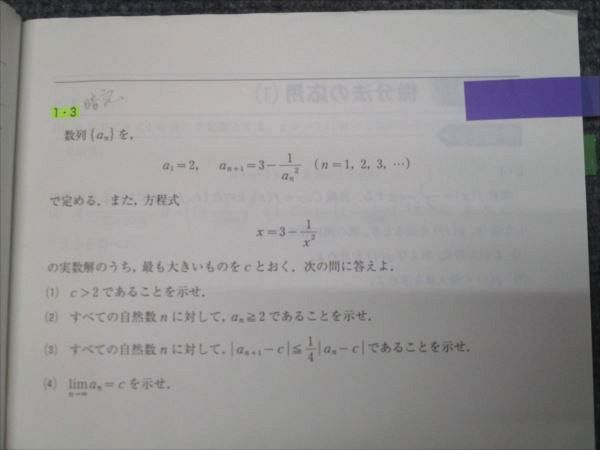 1・3 暗記
数列{aₙ}を,
a₁=2, aₙ₊₁=3-1/aₙ² (n=1, 2, 3, …)
で定める. また, 方程式
x=3-1/x²
の実数解のうち, 最も大きいものをcとおく. 次の問に答えよ.
(1) c>2であることを示せ.
(2) すべての自然数nに対して, aₙ≧2であることを示せ.
(3) すべての自然数nに対して, |aₙ₊₁-c|≦1/4|aₙ-c|であることを示せ.
(4) lim[n→∞] aₙ=cを示せ.